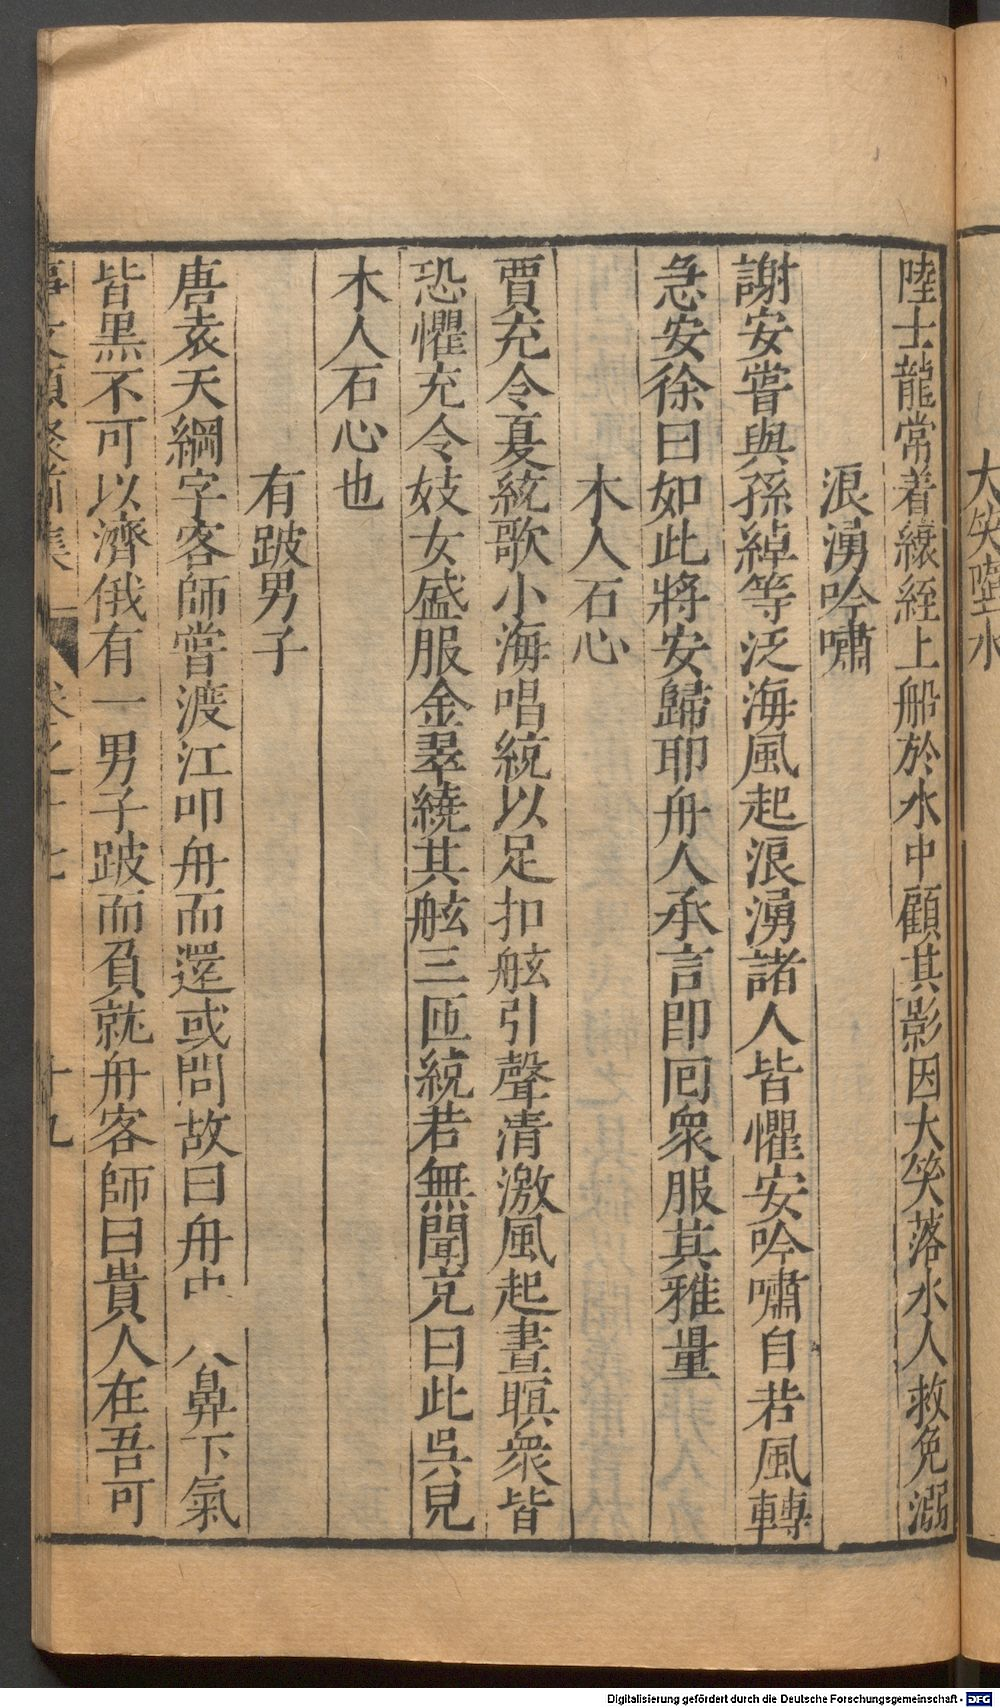 大笑墮水
陸士龍常着縗絰上船於水中顧其影因大笑落水人救免溺
浪湧吟嘯
謝安嘗與孫綽等泛海風起浪湧諸人皆懼安吟嘯自若風轉
急安徐曰如此將安歸耶舟人承言即囘衆服其雅量
木人石心
賈充令夏統歌小海唱統以足扣舷引聲清激風起晝暝衆皆
恐懼充令妓女盛服金翠繞其舷三匝統若無聞充曰此吳兒
木人石心也
有跛男子
唐袁天綱字客師嘗渡江叩舟而還或問故曰舟中 人鼻下氣
皆黑不可以濟俄有一男子跛而負就舟客師曰貴人在吾可
事文類聚前集 卷之十七 十九
Digitalisierung gefördert durch die Deutsche Forschungsgemeinschaft - DFG